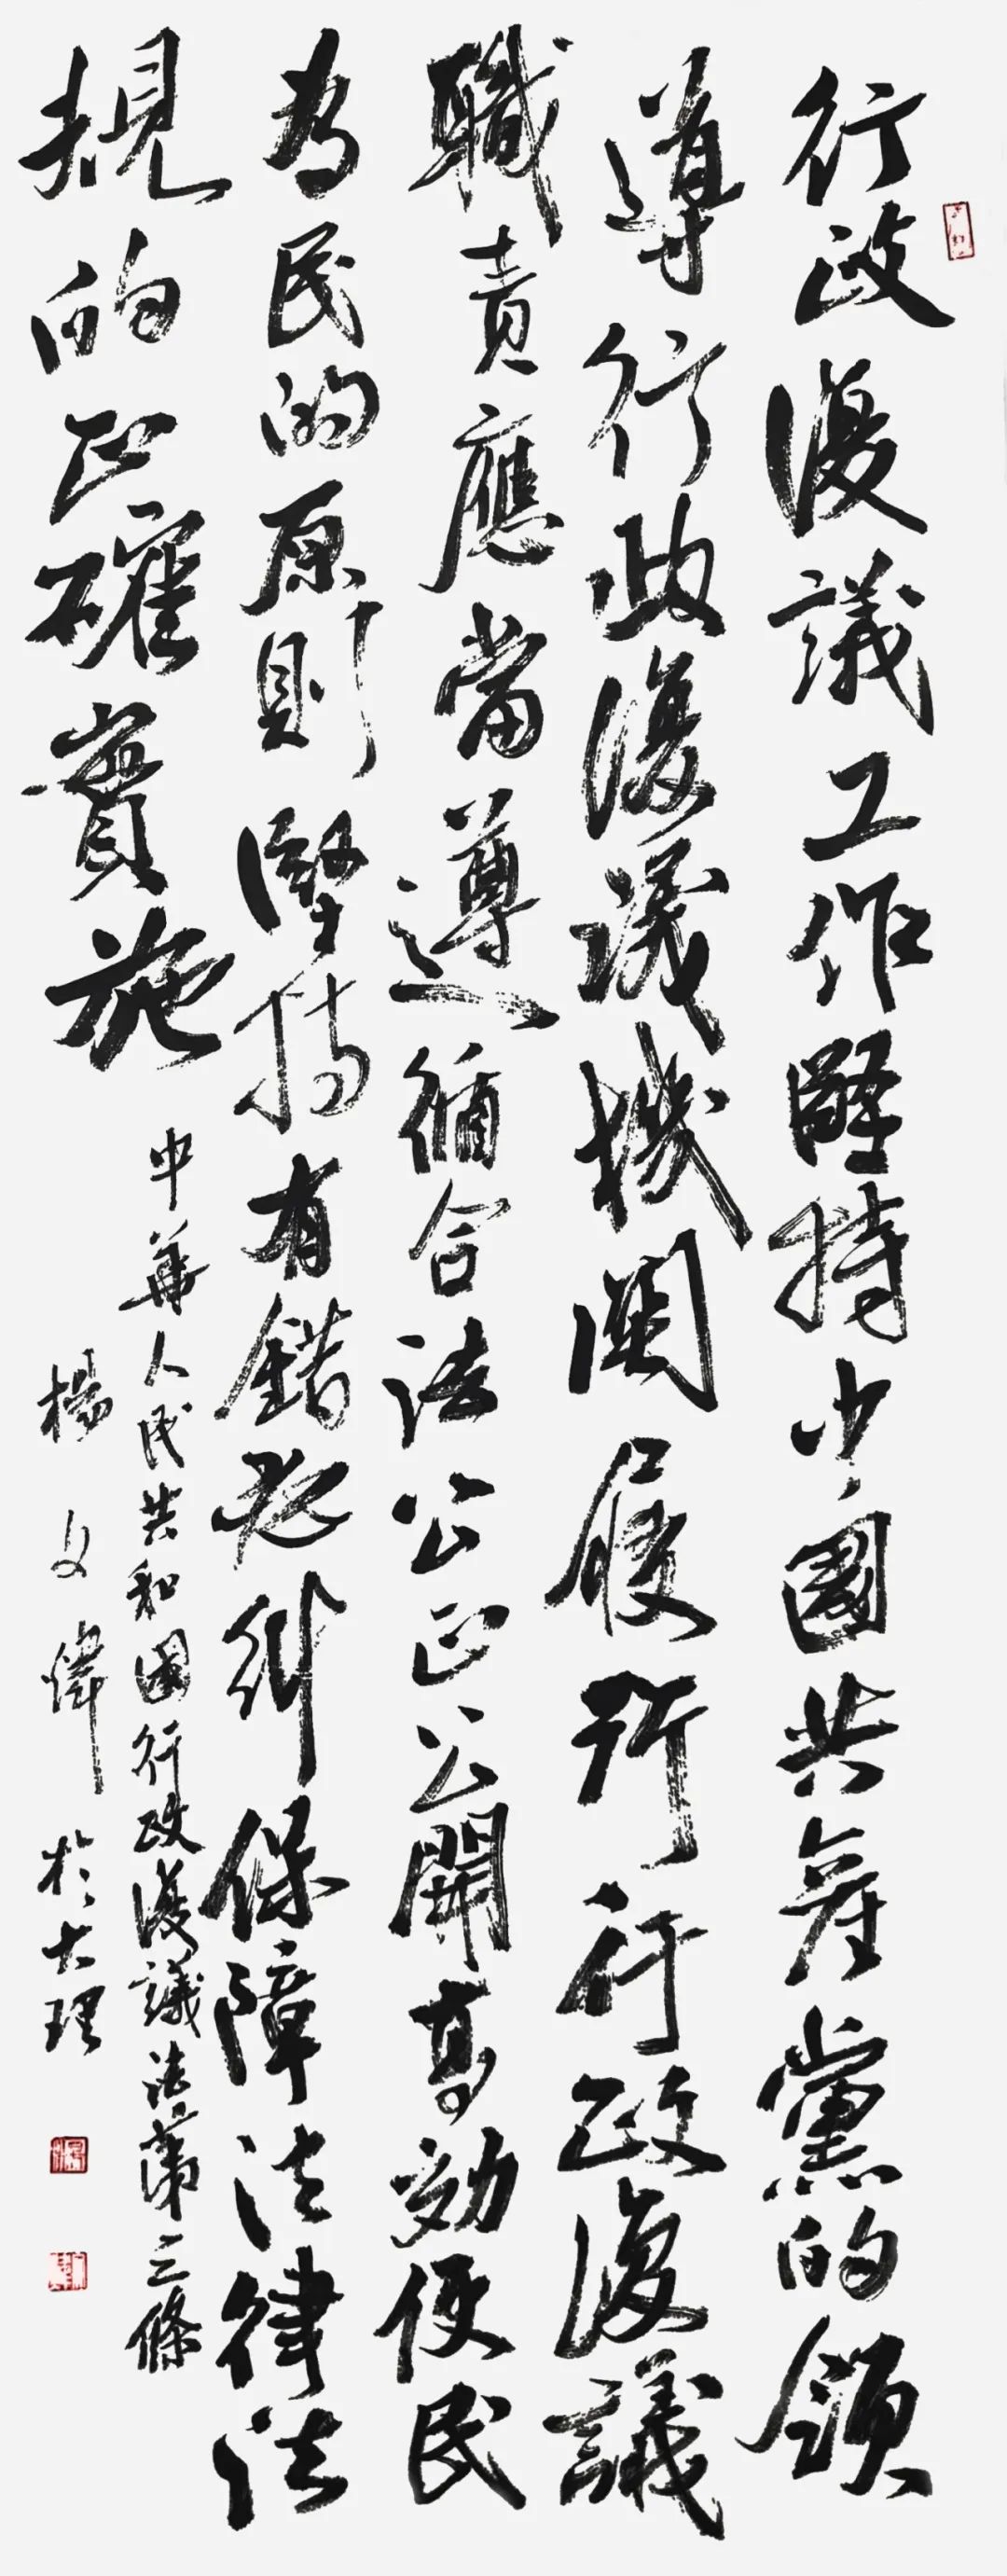 行政復議工作堅持中國共產黨的領
導行政復議機關履行行政復議
職責應當遵循合法公正公開高效便民
為民的原則堅持有錯必糾保障法律法
規的正確實施
中華人民共和國行政復議法第三條
楊文煒於大理